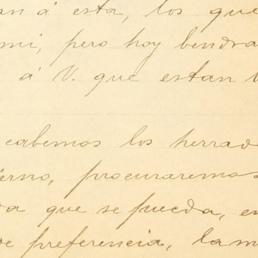 an á esta, los que
mi, pero hoy bendra
á V. que estan
cabemos los herrad
erno, procuraremos
a que se pueda, en
e preferencia, la m